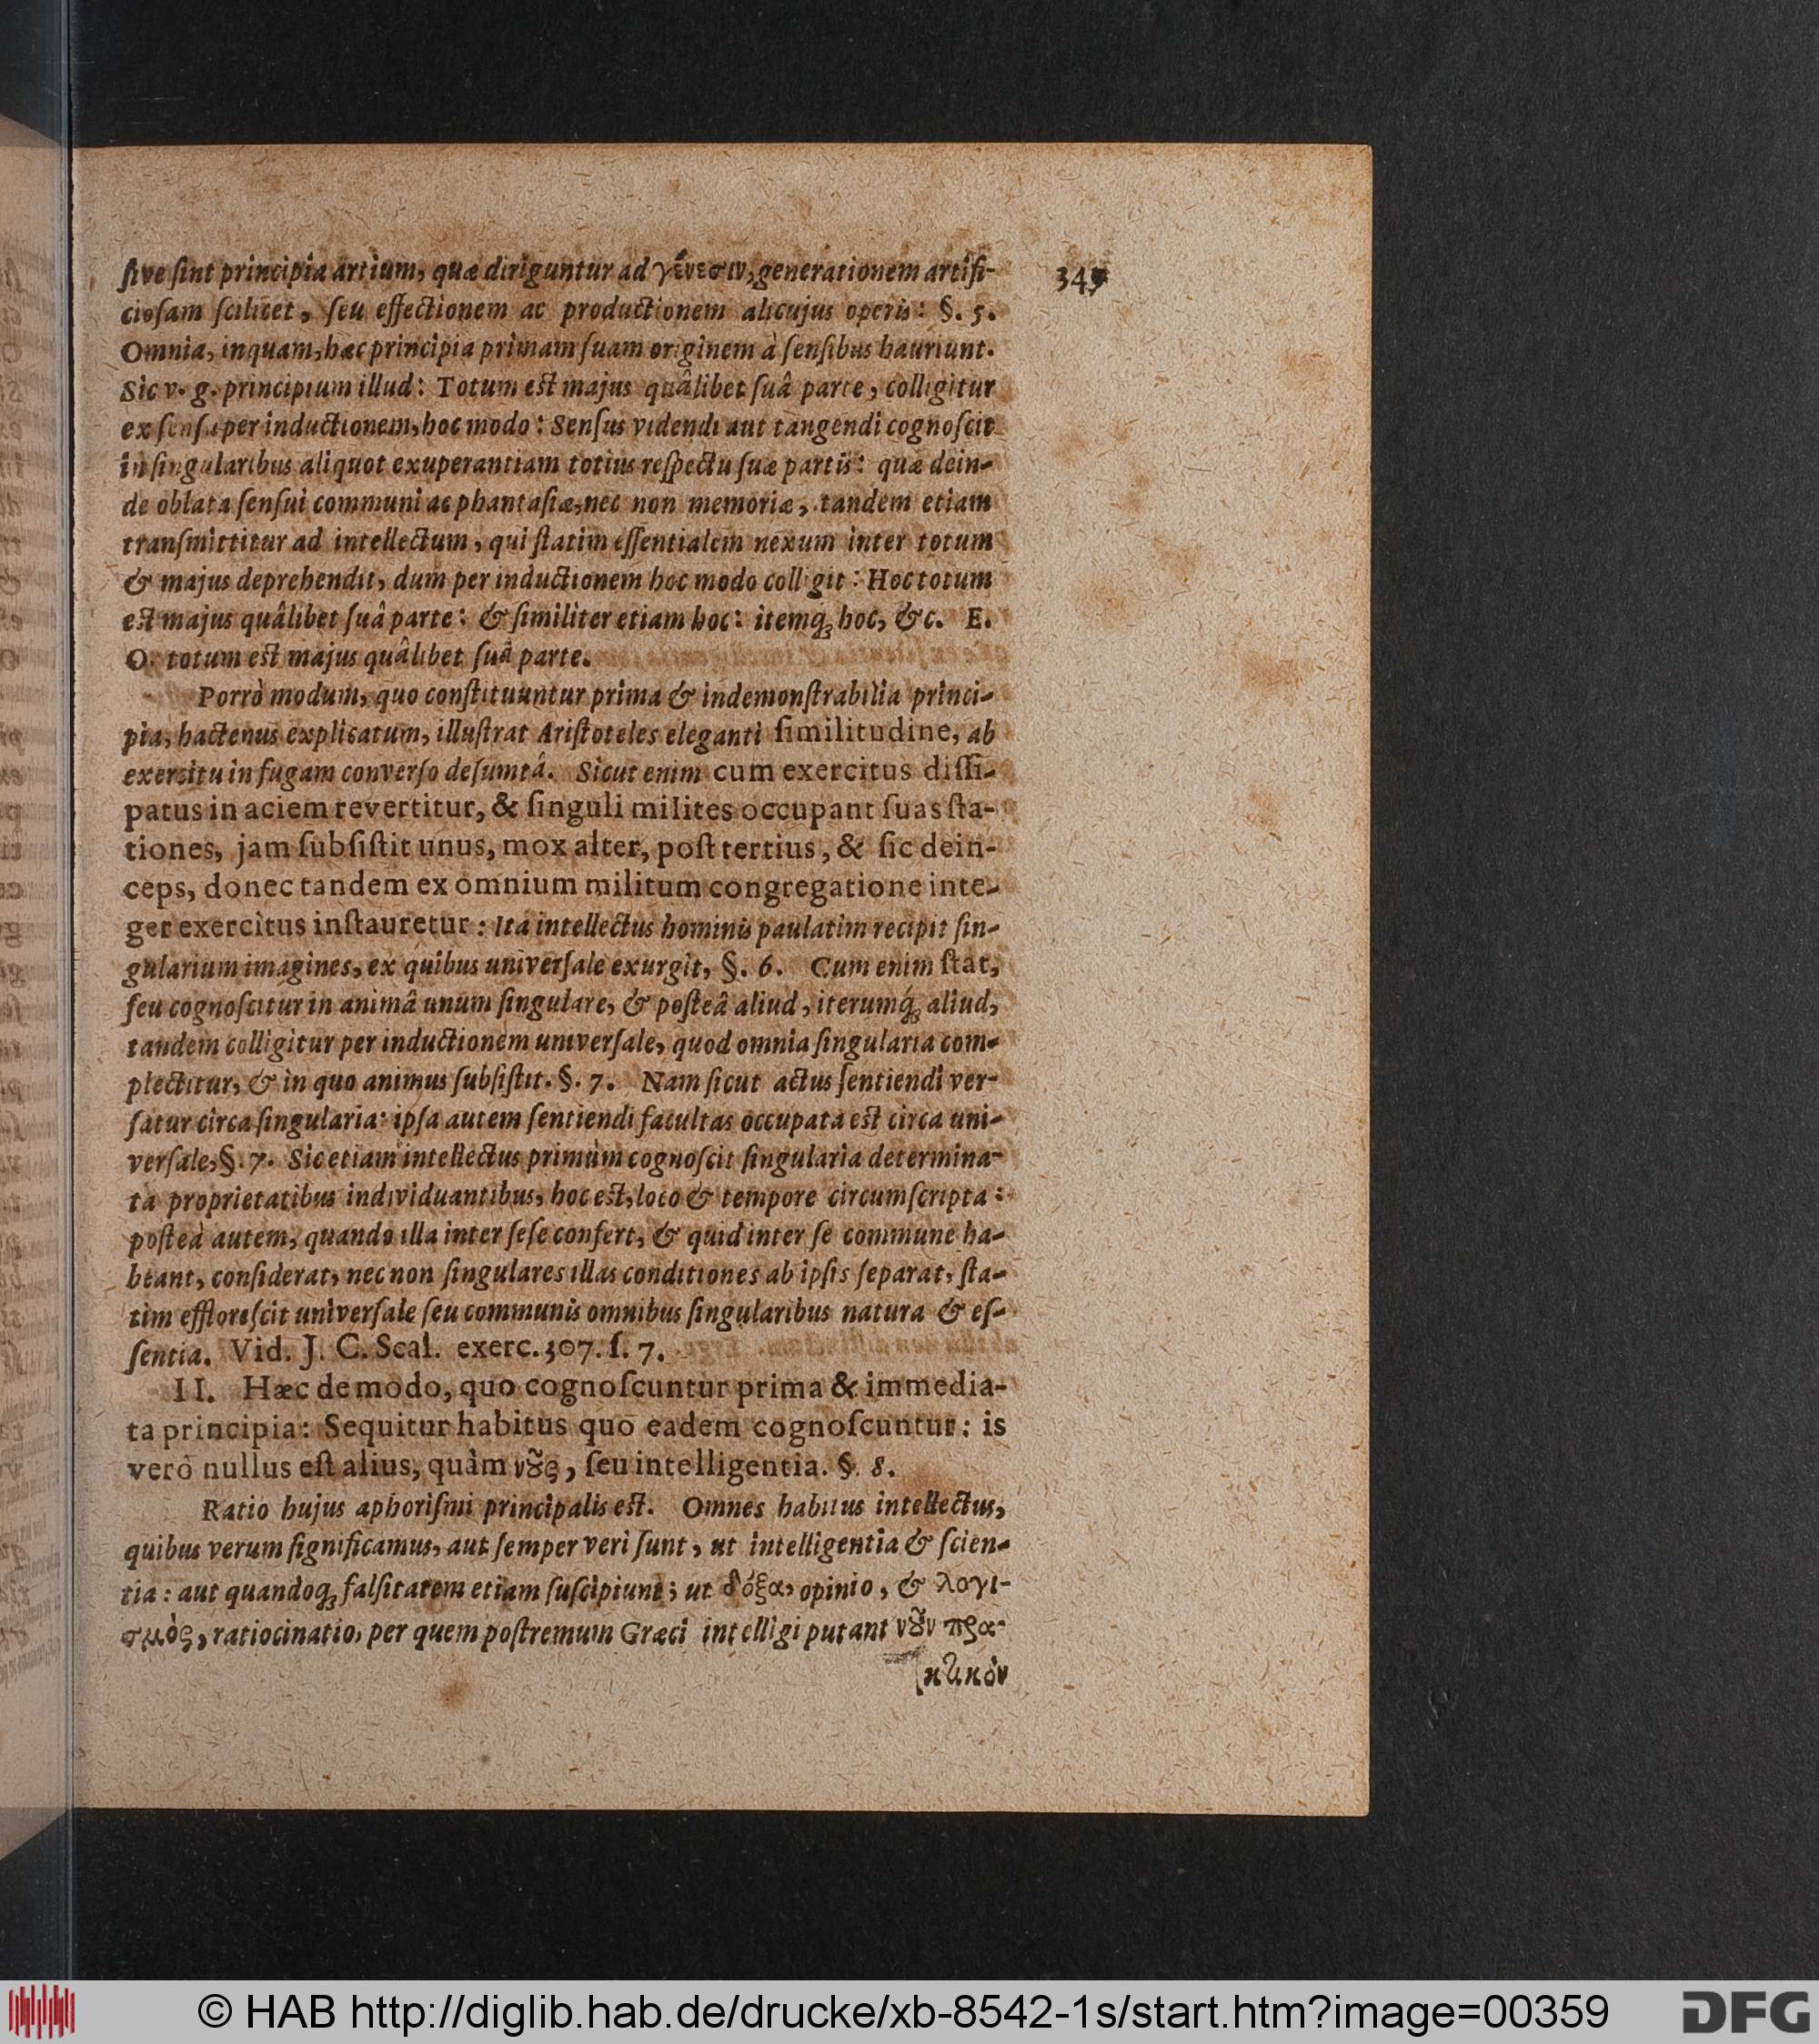 ſive ſint principia artium, quæ diriguntur ad γένεσιν, generationem artifi-
cioſam ſcilicet, ſeu effectionem ac productionem alicujus operis: §. 5.
Omnia, inquam, hæc principia primam ſuam originem à ſenſibus hauriunt.
Sic v. g. principium illud: Totum est majus quâlibet ſuâ parte, colligitur
ex ſenſu per inductionem, hoc modo: Senſus videndi aut tangendi cognoſcit
in ſingularibus aliquot exuperantiam totius reſpectu ſuæ partis: quæ dein-
de oblata ſenſui communi ac phantaſiæ, nec non memoriæ, tandem etiam
tranſmittitur ad intellectum, qui ſtatim eſſentialem nexum inter totum
& majus deprehendit, dum per inductionem hoc modo colligit: Hoc totum
est majus quâlibet ſuâ parte: & ſimiliter etiam hoc: itemq; hoc, &c. E.
O. totum est majus quâlibet ſuâ parte.
Porrò modum, quo conſtituuntur prima & indemonſtrabilia princi-
pia, hactenus explicatum, illuſtrat Ariſtoteles eleganti ſimilitudine, ab
exercitu in fugam converſo deſumtâ. Sicut enim cum exercitus diſſi-
patus in aciem revertitur, & ſinguli milites occupant ſuas ſta-
tiones, jam ſubſiſtit unus, mox alter, poſt tertius, & ſic dein-
ceps, donec tandem ex omnium militum congregatione inte-
ger exercitus inſtauretur: Ita intellectus hominis paulatim recipit ſin-
gularium imagines, ex quibus univerſale exurgit, §. 6. Cum enim ſtat,
ſeu cognoſcitur in animâ unum ſingulare, & poſteâ aliud, iterumq́; aliud,
tandem colligitur per inductionem univerſale, quod omnia ſingularia com-
plectitur, & in quo animus ſubſiſtit. §. 7. Nam ſicut actus ſentiendi ver-
ſatur circa ſingularia: ipſa autem ſentiendi facultas occupata est circa uni-
verſale, §. 7. Sic etiam intellectus primùm cognoſcit ſingularia determina-
ta proprietatibus individuantibus, hoc est, loco & tempore circumſcripta:
poſteà autem, quando illa inter ſeſe confert, & quid inter ſe commune ha-
beant, conſiderat, nec non ſingulares illas conditiones ab ipſis ſeparat, ſta-
tim effloreſcit univerſale ſeu communis omnibus ſingularibus natura & eſ-
ſentia. Vid. J. C. Scal. exerc. 307. ſ. 7.
II. Hæc de modo, quo cognoſcuntur prima & immedia-
ta principia: Sequitur habitus quo eadem cognoſcuntur: is
verò nullus eſt alius, quàm νȣ̃ς, ſeu intelligentia. §. 8.
Ratio hujus aphoriſmi principalis est. Omnes habitus intellectus,
quibus verum ſignificamus, aut ſemper veri ſunt, ut intelligentia & ſcien-
tia: aut quandoq; falſitatem etiam ſuſcipiunt; ut δόξα, opinio, & λογι-
σμὸς, ratiocinatio, per quem poſtremum Græci intelligi putant νȣ̃ν πρα-
κτικὸν
© HAB http://diglib.hab.de/drucke/xb-8542-1s/start.htm?image=00359
DFG